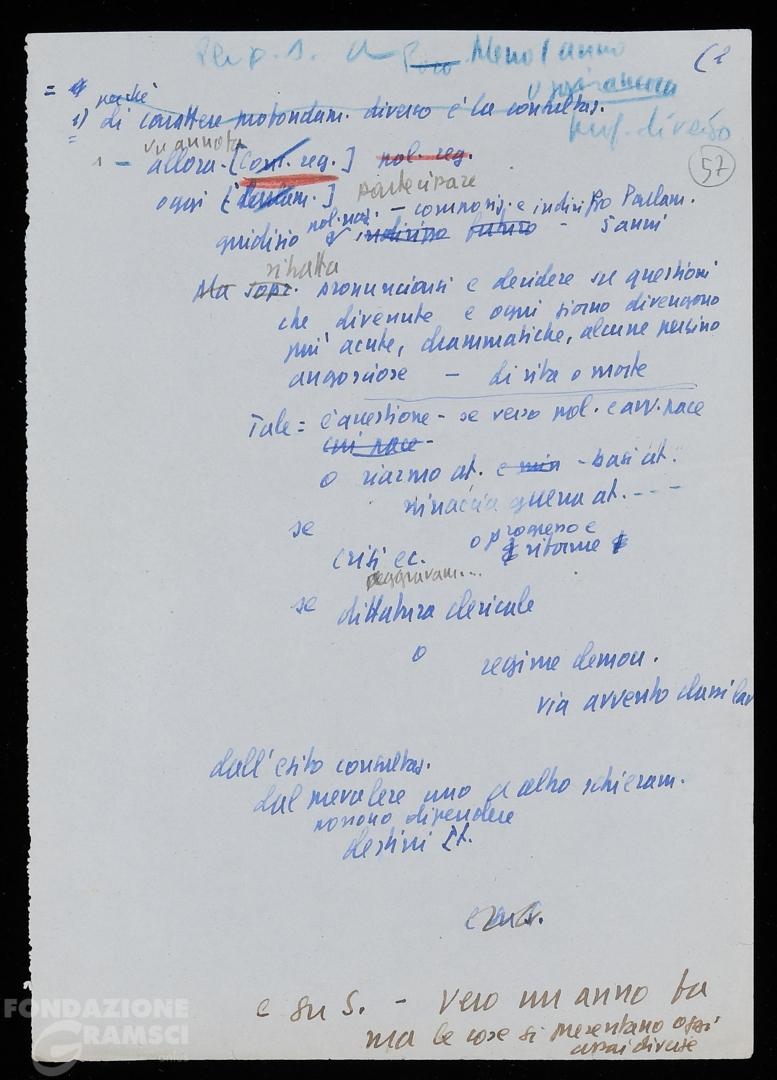 Meno 1 anno
(2
oggi ancora
= perché
1) di carattere profondam. diverso è la consultaz.
prof. diverso
57
un anno fa
1 - allora - [Cons. reg.] pol. reg.
partecipare
oggi [Parlam.]
pol. naz. - composiz. e indirizzo Parlam.
giudizio indirizzo futuro - 5 anni
si tratta
Ma sopr. pronunciarsi e decidere su questioni
che divenute e ogni giorno divengono
più acute, drammatiche, alcune persino
angosciose - di vita o morte
Tale = è questione - se verso pol. e avv. pace
o riarmo at. e min - basi at.
minaccia guerra at. - - -
se
crisi ec. o progresso e
riforme
aggravam...
se dittatura clericale
o
regime democr.
via avvento classi lav
dall'esito consultaz.
dal prevalere uno o altro schieram.
possono dipendere
destini It.
e su S. - Vero un anno fa
ma le cose si presentano oggi
assai diverse
FONDAZIONE
GRAMSCI
onlus